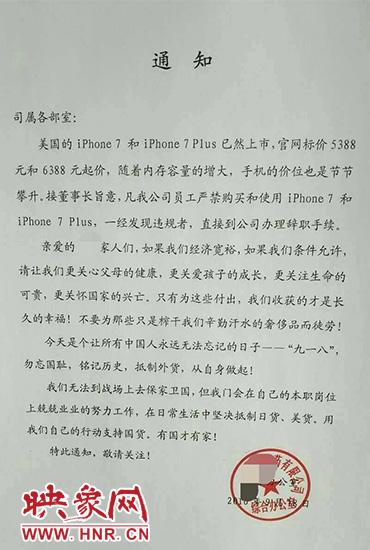 通 知
司属各部室：
美国的 iPhone 7 和 iPhone 7 Plus 已然上市，官网标价 5388
元和 6388 元起价，随着内存容量的增大，手机的价位也是节节
攀升。接董事长旨意，凡我公司员工严禁购买和使用 iPhone 7 和
iPhone 7 Plus，一经发现违规者，直接到公司办理辞职手续。
亲爱的 家人们，如果我们经济宽裕，如果我们条件允许，
请让我们更关心父母的健康，更关爱孩子的成长，更关注生命的
可贵，更关怀国家的兴亡。只有为这些付出，我们收获的才是长
久的幸福！不要为那些只是榨干我们辛勤汗水的奢侈品而徒劳！
今天是个让所有中国人永远无法忘记的日子——“九一八”，
勿忘国耻，铭记历史，抵制外货，从自身做起。
我们无法到战场上去保家卫国，但我们会在自己的本职岗位
上兢兢业业的努力工作，在日常生活中坚决抵制日货、美货。用
我们自己的行动支持国货。有国才有家！
特此通知，敬请关注！
有限公司
综合办公室
日
映象网
WWW.HNR.CN